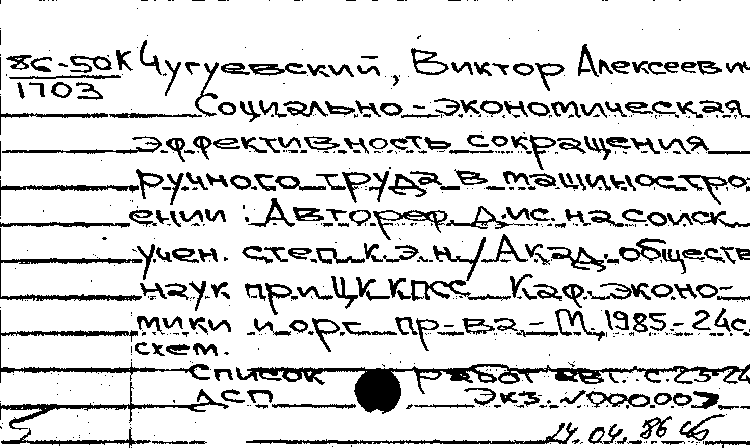 86-50К Чугуевский, Виктор Алексеевич
1703
Социально-экономическая
эффективность сокращения
ручного труда в машиностро-
ении : Автореф. дис. на соиск
учен. степ. к.э.н./Акад. обществ
наук при ЦК КПСС Каф. эконо-
мики и орг. пр-ва - М., 1985 - 24с
схем.
Список работ авт. с. 23-24
ДСП Экз. N000007
24.04.86